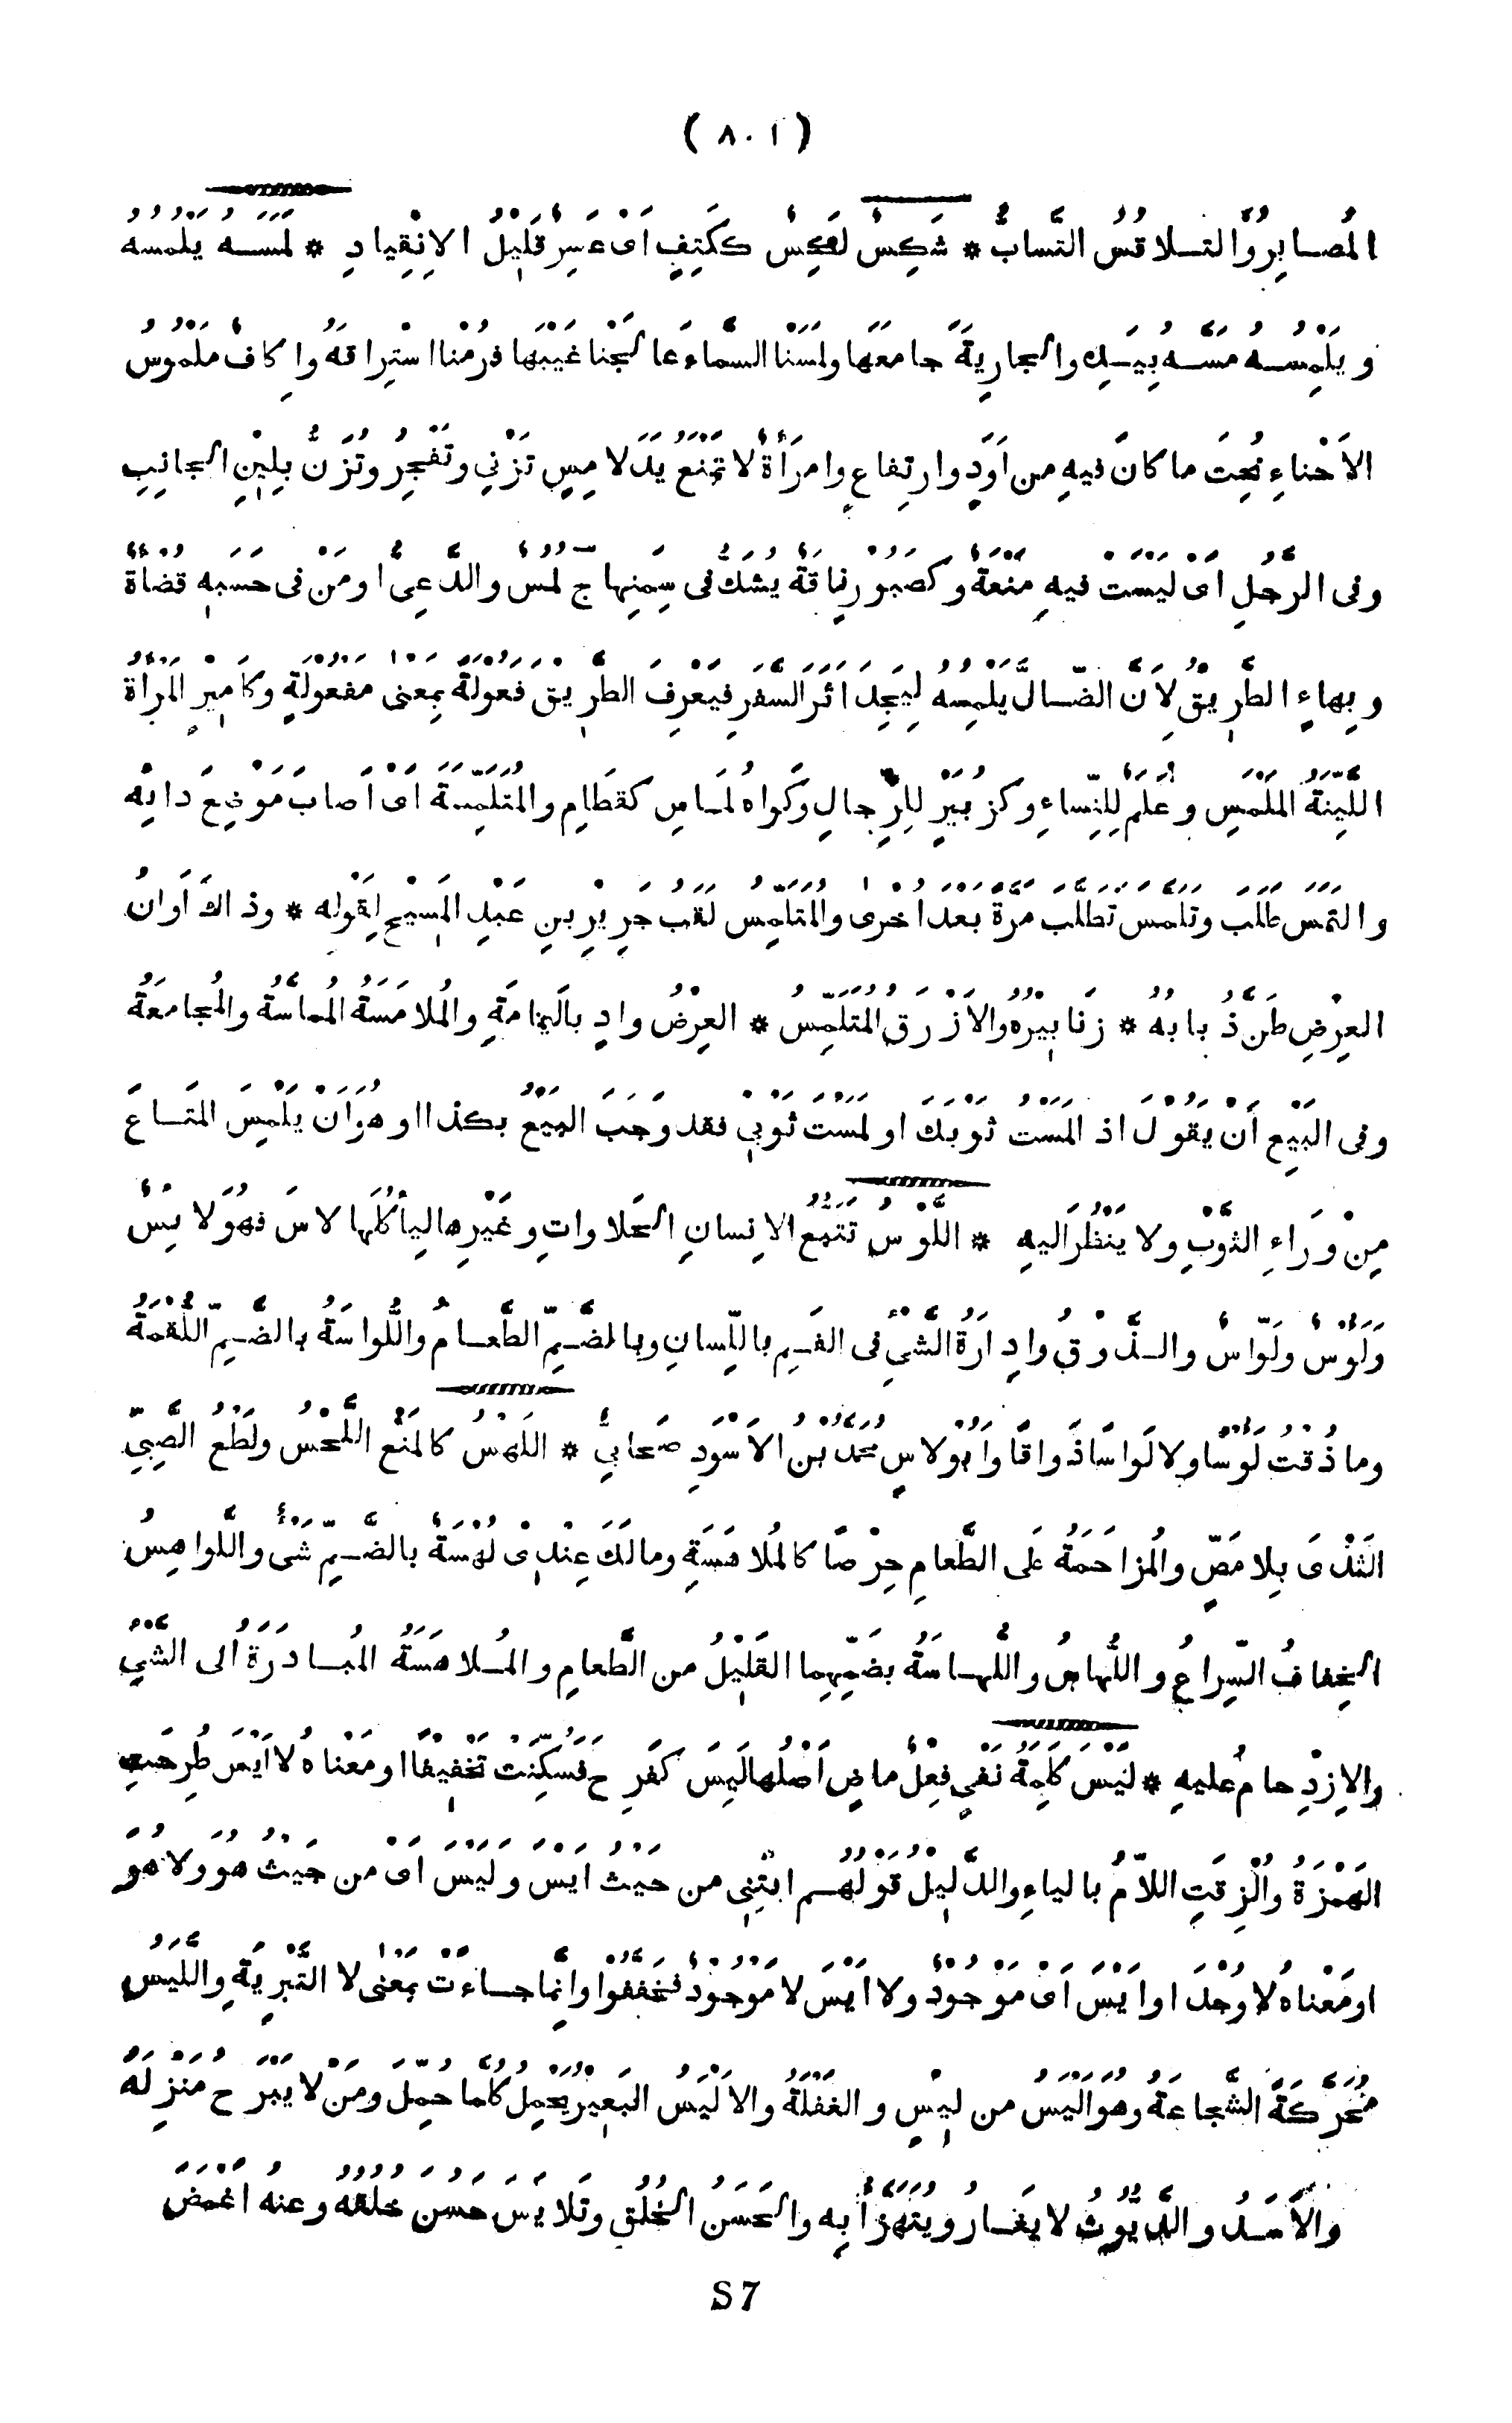 ( ٨٠١ )
المُصابِرُ والتَّلاقُسُ التَّسابُّ * شَكِسٌ لَعِكِسٌ كَكَتِفٍ اَىْ عَسِرٌ قَلِيْلُ الاِنْقِيادِ * لَمَسَهُ يَلْمُسُهُ
و يَلْمِسُهُ مَسَّهُ بِيَدِهِ والجارِيَةَ جامَعَها ولَمَسْنا السَّماءَ عالَجْنا غَيْبَها فَرُمْنا اسْتِراقَهُ واِكافٌ مَلْمُوسُ
الاَحْناءِ نُحِتَ ما كانَ فيهِ من اَوَدٍ وارتِفاعٍ وامرَأةٌ لاتَمْنَعُ يَدَ لامِسٍ تَزْنِي وتَفْجِرُ وتُزَنُّ بِلِيْنِ الجانِبِ
وفى الرَّجُلِ اَىْ لَيْسَتْ فيهِ مَنْعَةٌ وكَصَبُوْرٍ ناقَةٌ يُشَكُّ فى سِمَنِها ج لُمُسٌ والدَّعِىُّ اومَنْ فى حَسَبِهِ قُضْأَةٌ
و بِهاءٍ الطَّرِيْقُ لِاَنَّ الضّالَّ يَلْمِسُهُ لِيَجِدَ اَثَرَ السَّفَرِ فيَعْرِفَ الطَّرِيْقَ فَعُوْلَةٌ بِمَعْنى مَفْعُوْلَةٍ وكَاَمِيْرٍ المَرْأَةُ
اللَّيِّنَةُ المَلْمَسِ و عَلَمٌ لِلنِّساءِ وكَزُبَيْرٍ لِلرِّجالِ وكَواهُ لَماسِ كقَطامِ والمُتَلَمِّسَةَ اَىْ اَصابَ مَوْضِعَ دائِهِ
والتَمَسَ طَلَبَ وتَلَمَّسَ تَطَلَّبَ مَرَّةً بَعْدَ اُخْرى والمُتَلَمِّسُ لَقَبُ جَرِيْرِ بنِ عَبْدِ المَسِيْحِ لِقَوْلِهِ * وذاكَ اَوانُ
العِرْضِ طَنَّ ذُبابُهُ * زَنابِيْرُهُ والاَزْرَقُ المُتَلَمِّسُ * العِرْضُ وادٍ باليَمامَةِ والمُلامَسَةُ المُماسَّةُ والمُجامَعَةُ
وفى البَيْعِ أنْ يَقُوْلَ اذا لَمَسْتُ ثَوْبَكَ او لَمَسْتَ ثَوْبِيْ فقد وَجَبَ البَيْعُ بكذا اوهُوَ اَنْ يَلْمِسَ المَتاعَ
مِنْ وَراءِ الثَّوْبِ ولا يَنْظُرَ اليهِ * اللَّوْسُ تَتَبُّعُ الانسانِ الحَلاواتِ وغَيْرِها لِيأكُلَها لاسَ فهُوَ لائِسٌ
ولَوُسٌ ولَوّاسٌ والذَّوْقُ واِدارَةُ الشَّئِ فى الفَمِ باللِّسانِ وبالضَّمِّ الطَّعامُ واللُّواسَةُ بالضَّمِّ اللُّقْمَةُ
وما ذُقْتُ لَوْسًا ولا لَواسًا ذَواقًا وَاَبُوْلاسٍ مُحَمَّدُ بْنُ الاَسْوَدِ صَحابِيٌّ * اللَهْسُ كالمَنْعِ اللَّحْسُ ولَطْعُ الصَّبِيِّ
الثَدْىَ بِلا مَصٍّ والمُزاحَمَةُ عَلَى الطَّعامِ حِرْصًا كالمُلاهَسَةِ ومالَكَ عِنْدِىْ لُهْسَةٌ بالضَّمِّ شَىْءٌ واللَّواهِسُ
الخِفافُ السِّراعُ واللُّهاسُ واللُّهاسَةُ بضَمِّهِما القَلِيْلُ من الطَّعامِ والمُلاهَسَةُ المُبادَرَةُ الى الشَّىْءِ
والاِزْدِحامُ عليهِ * لَيْسَ كَلِمَةُ نَفْيٍ فِعْلٌ ماضٍ اَصْلُها لَيِسَ كفَرِحَ فسُكِّنَتْ تَخْفِيْفًا او مَعْناهُ لا اَيْسَ طُرِحَتِ
الهَمْزَةُ واُلْزِقَتِ اللاّمُ بالياءِ والدَّلِيْلُ قَوْلُهُم ائتِنِى من حَيْثُ اَيْسَ ولَيْسَ اَىْ من حَيْثُ هُوَ ولا هُوَ
اومَعْناهُ لا وُجْدَ او اَيْسَ اَىْ مَوْجُوْدٌ ولا اَيْسَ لا مَوْجُوْدٌ فخَفَّفُوْا وانَّما جاءَتْ بمَعْنَى لا التَّبْرِيَةِ واللَّيَسُ
مُحَرَّكَةً الشَّجاعَةُ وهُوَ اَلْيَسُ من لِيْسٍ و الغَفْلَةُ والاَلْيَسُ البَعِيْرُ يَحْمِلُ كُلَّما حُمِّلَ ومَنْ لا يَبْرَحُ مَنْزِلَهُ
والاَسَدُ والدَّيُّوْثُ لا يَغارُ و يُتَهَزَّأُ بِهِ والحَسَنُ الخُلُقِ وتَلايَسَ حَسُنَ خُلُقُهُ وعنهُ اَغْمَضَ
S 7